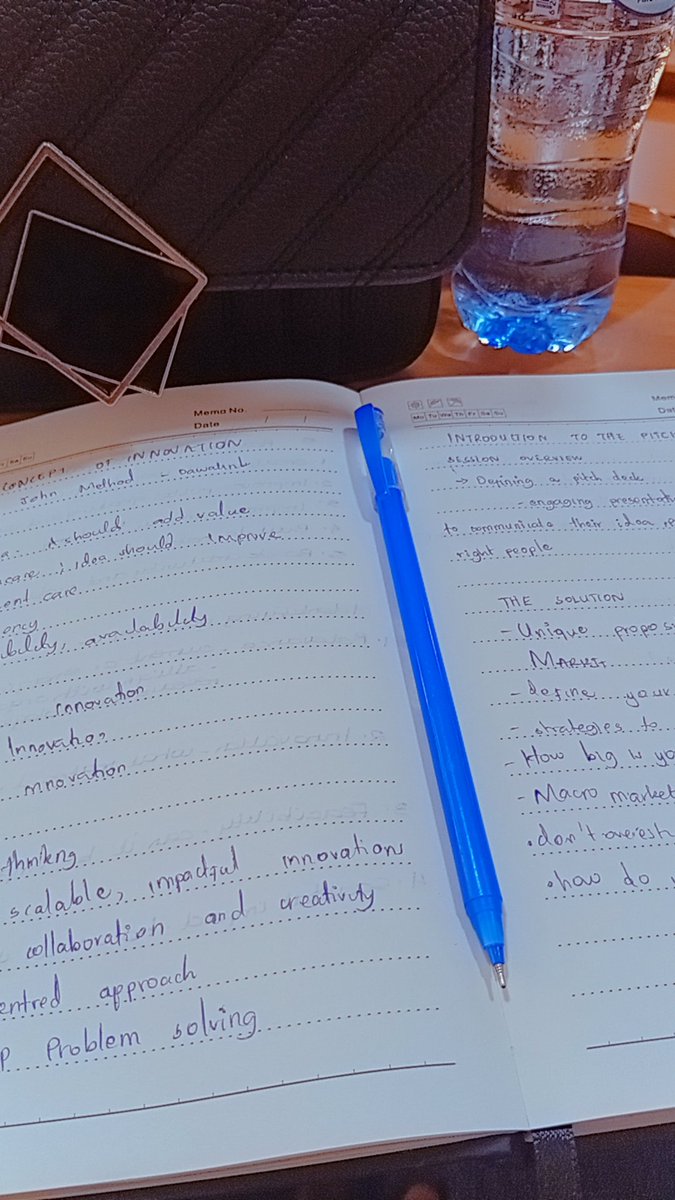 Memo No.
Date
CONCEPT OF INNOVATION
John Method - Dawalink
it should add value
care ; idea should improve
ent care
ency
ability, availability
innovation
Innovation
innovation
thinking
scalable, impactful innovations
collaboration and creativity
entred approach
P Problem solving
Mo Tu We Th Fr Sa Su
Mem
Dat
INTRODUCTION TO THE PITCH
SESSION OVERVIEW
→ Defining a pitch deck
- engaging presentati
to communicate their idea
right people
THE SOLUTION
- Unique propos
MARKET
- define your
- strategies to
- How big is yo
- Macro market
. don't overest
. how do